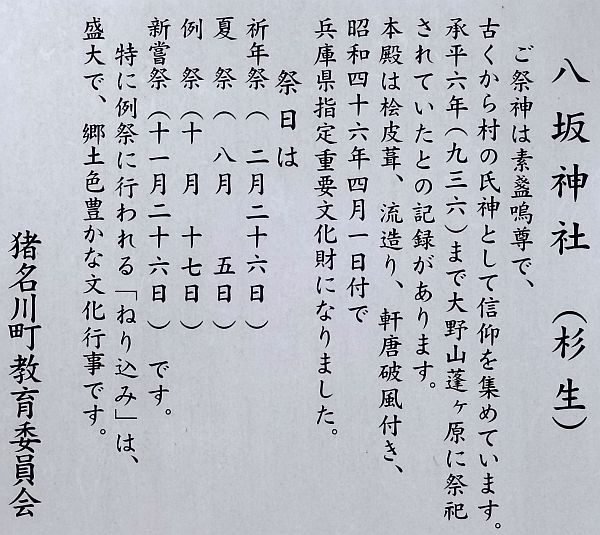 八坂神社 (杉生)
ご祭神は素盞嗚尊で、
古くから村の氏神として信仰を集めています。
承平六年(九三六)まで大野山蓬ヶ原に祭祀
されていたとの記録があります。
本殿は桧皮葺、流造り、軒唐破風付き、
昭和四十六年四月一日付で
兵庫県指定重要文化財になりました。
祭日は
祈年祭(二月二十六日)
夏 祭(八月 五日)
例 祭(十月 十七日)
新嘗祭(十一月二十六日) です。
特に例祭に行われる「ねり込み」は、
盛大で、郷土色豊かな文化行事です。
猪名川町教育委員会